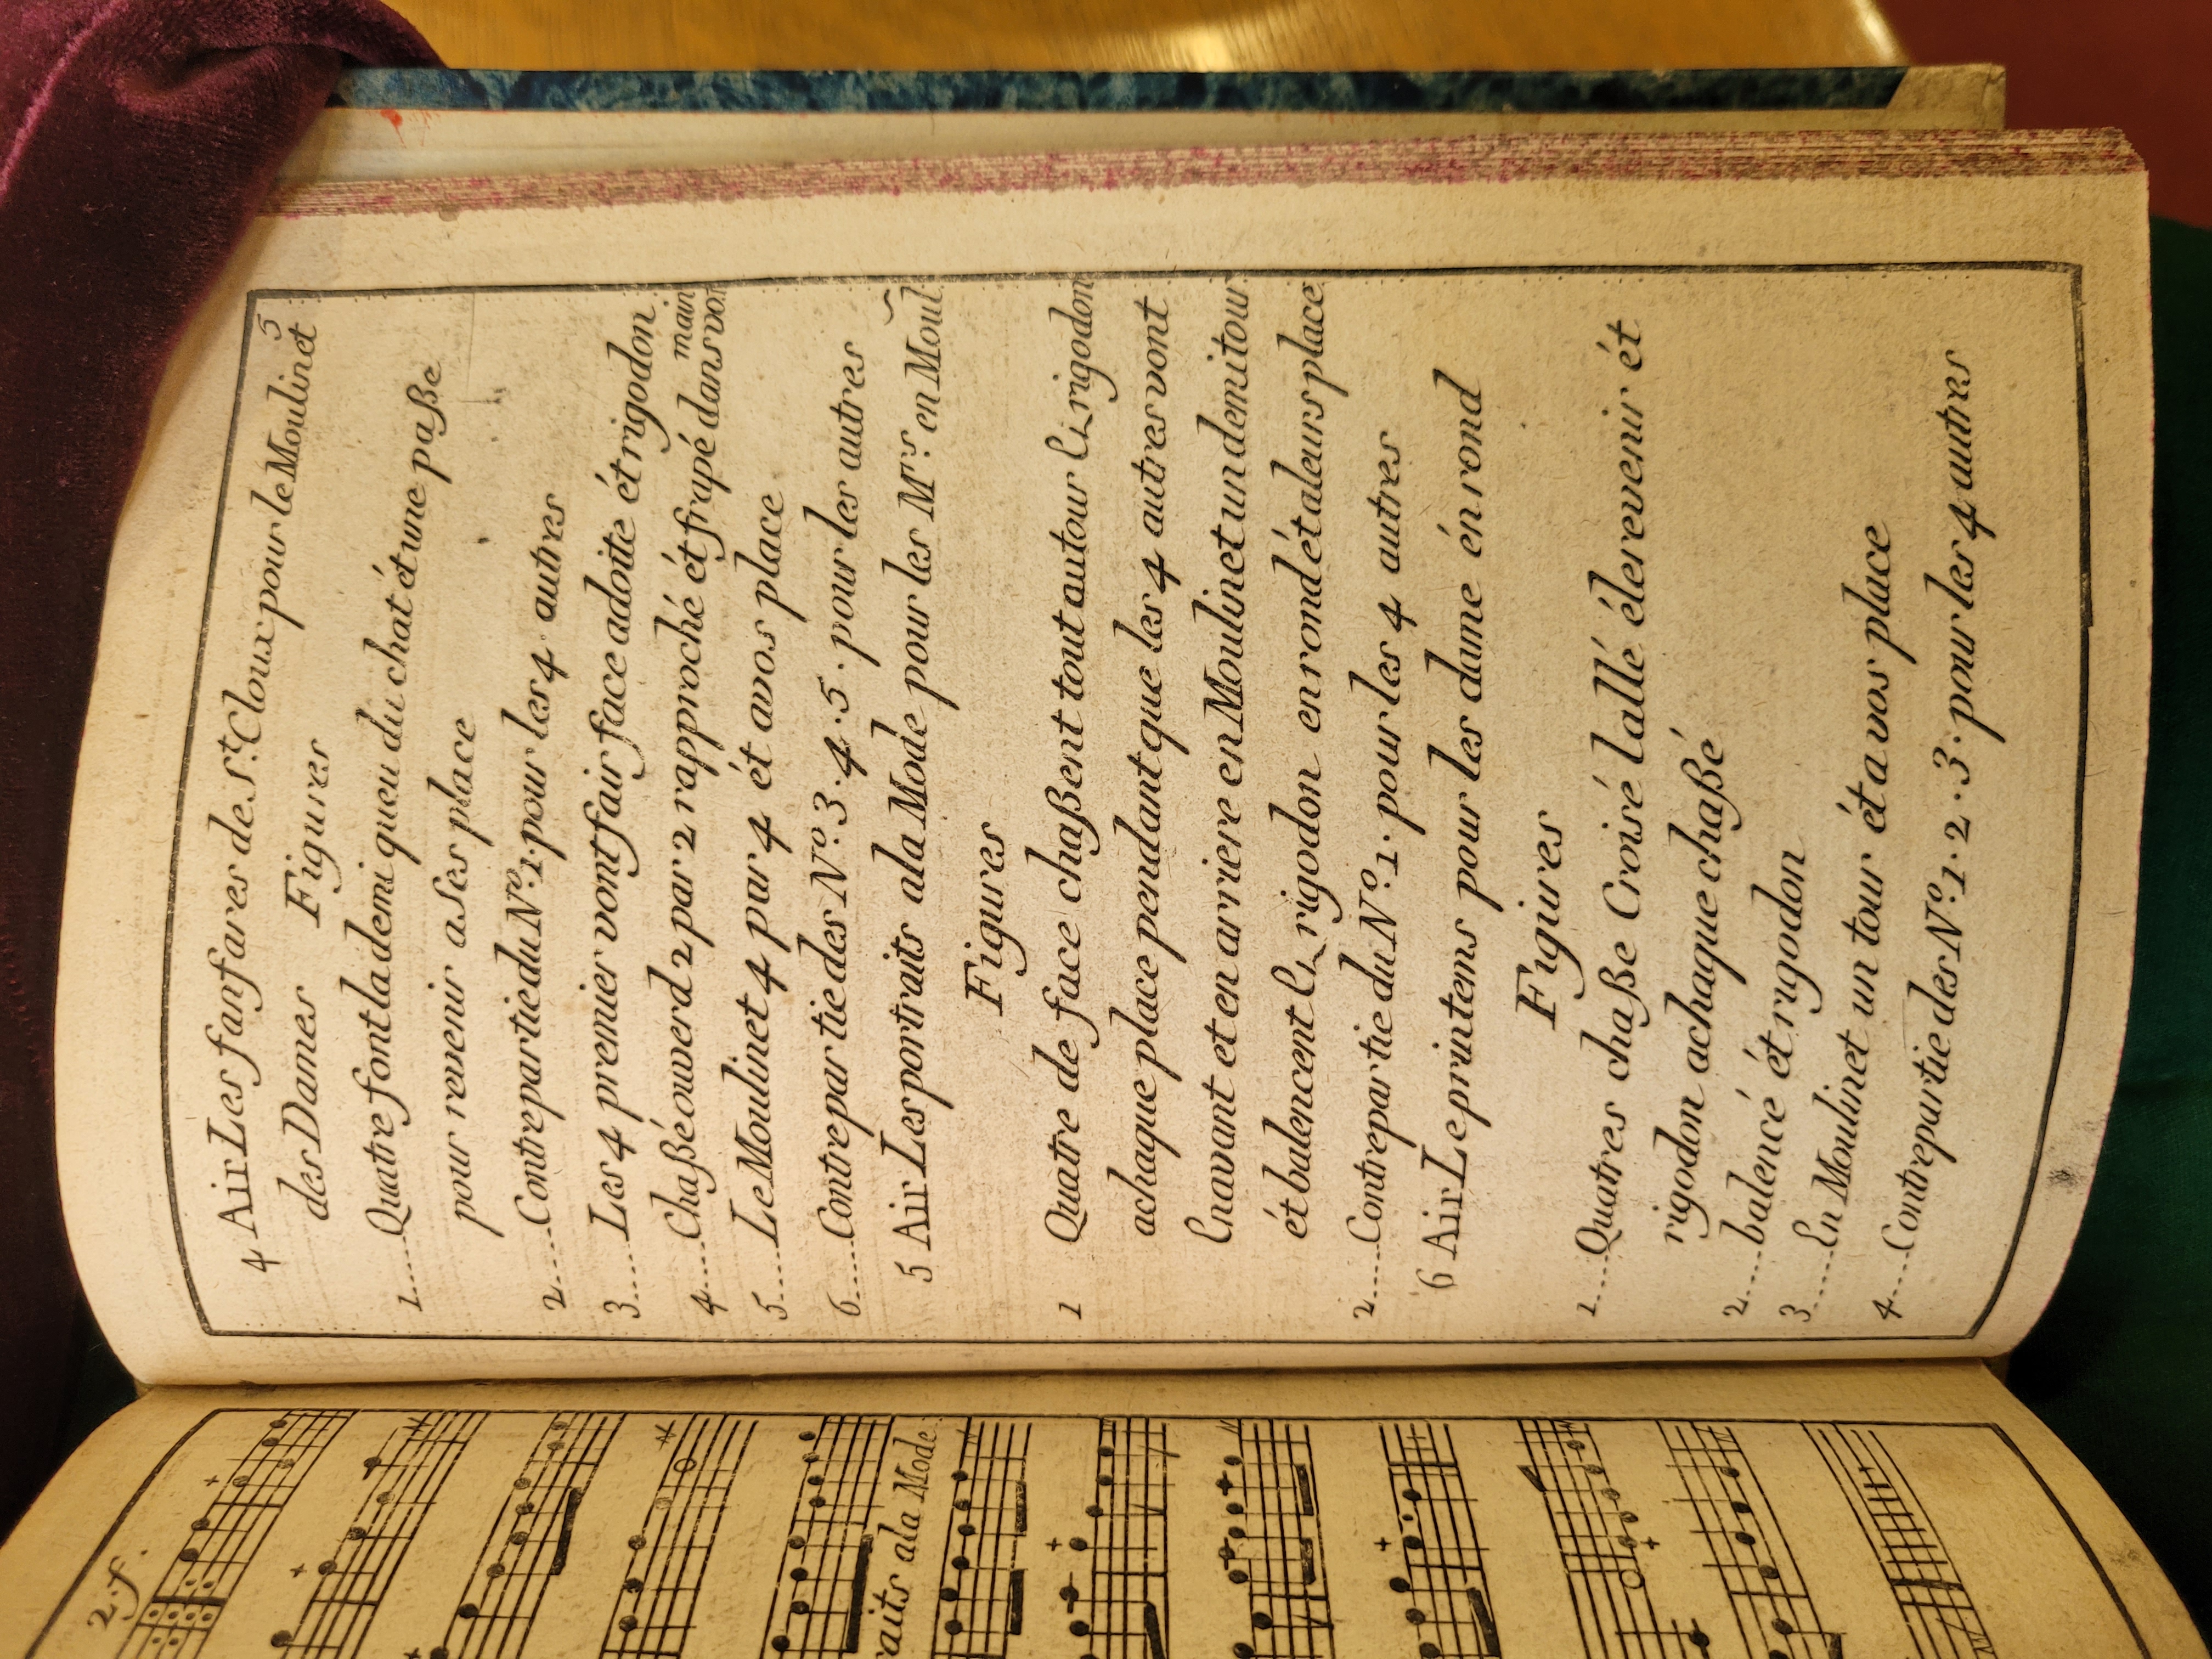 5
4 Air Les fanfares de St. Cloux pour le Moulinet
des Dames Figures
1.....Quatre font la demi queu du chat ét une paße
pour revenir a ses place
2.....Contrepartie du No. 1. pour les 4 autres
3.....Les 4 premier vont fair face adoite ét rigodon
4.....Chaßé ouverd 2 par 2 rapproché ét frapé dans vor main
5.....Le Moulinet 4 par 4 ét avos place
6.....Contrepartie des No. 3. 4. 5. pour les autres
5 Air Les portraits ala Mode pour les Mrs. en Moul
Figures
1 Quatre de face chaßent tout autour Et rigodon
achaque place pendant que les 4 autres vont
Enavant et en arriere en Moulinet un demi tour
ét balencent Et rigodon en rond ét aleurs place
2.....Contrepartie du No. 1. pour les 4 autres
6 Air Le printems pour les dame én rond
Figures
1.....Quatres chaße Croisé lallé éle revenir ét
rigodon achaque chaßé
2.....balencé ét rigodon
3.....En Moulinet un tour ét a vos place
4.....Contrepartie des No. 1. 2. 3. pour les 4 autres
2.f.
raits ala Mode